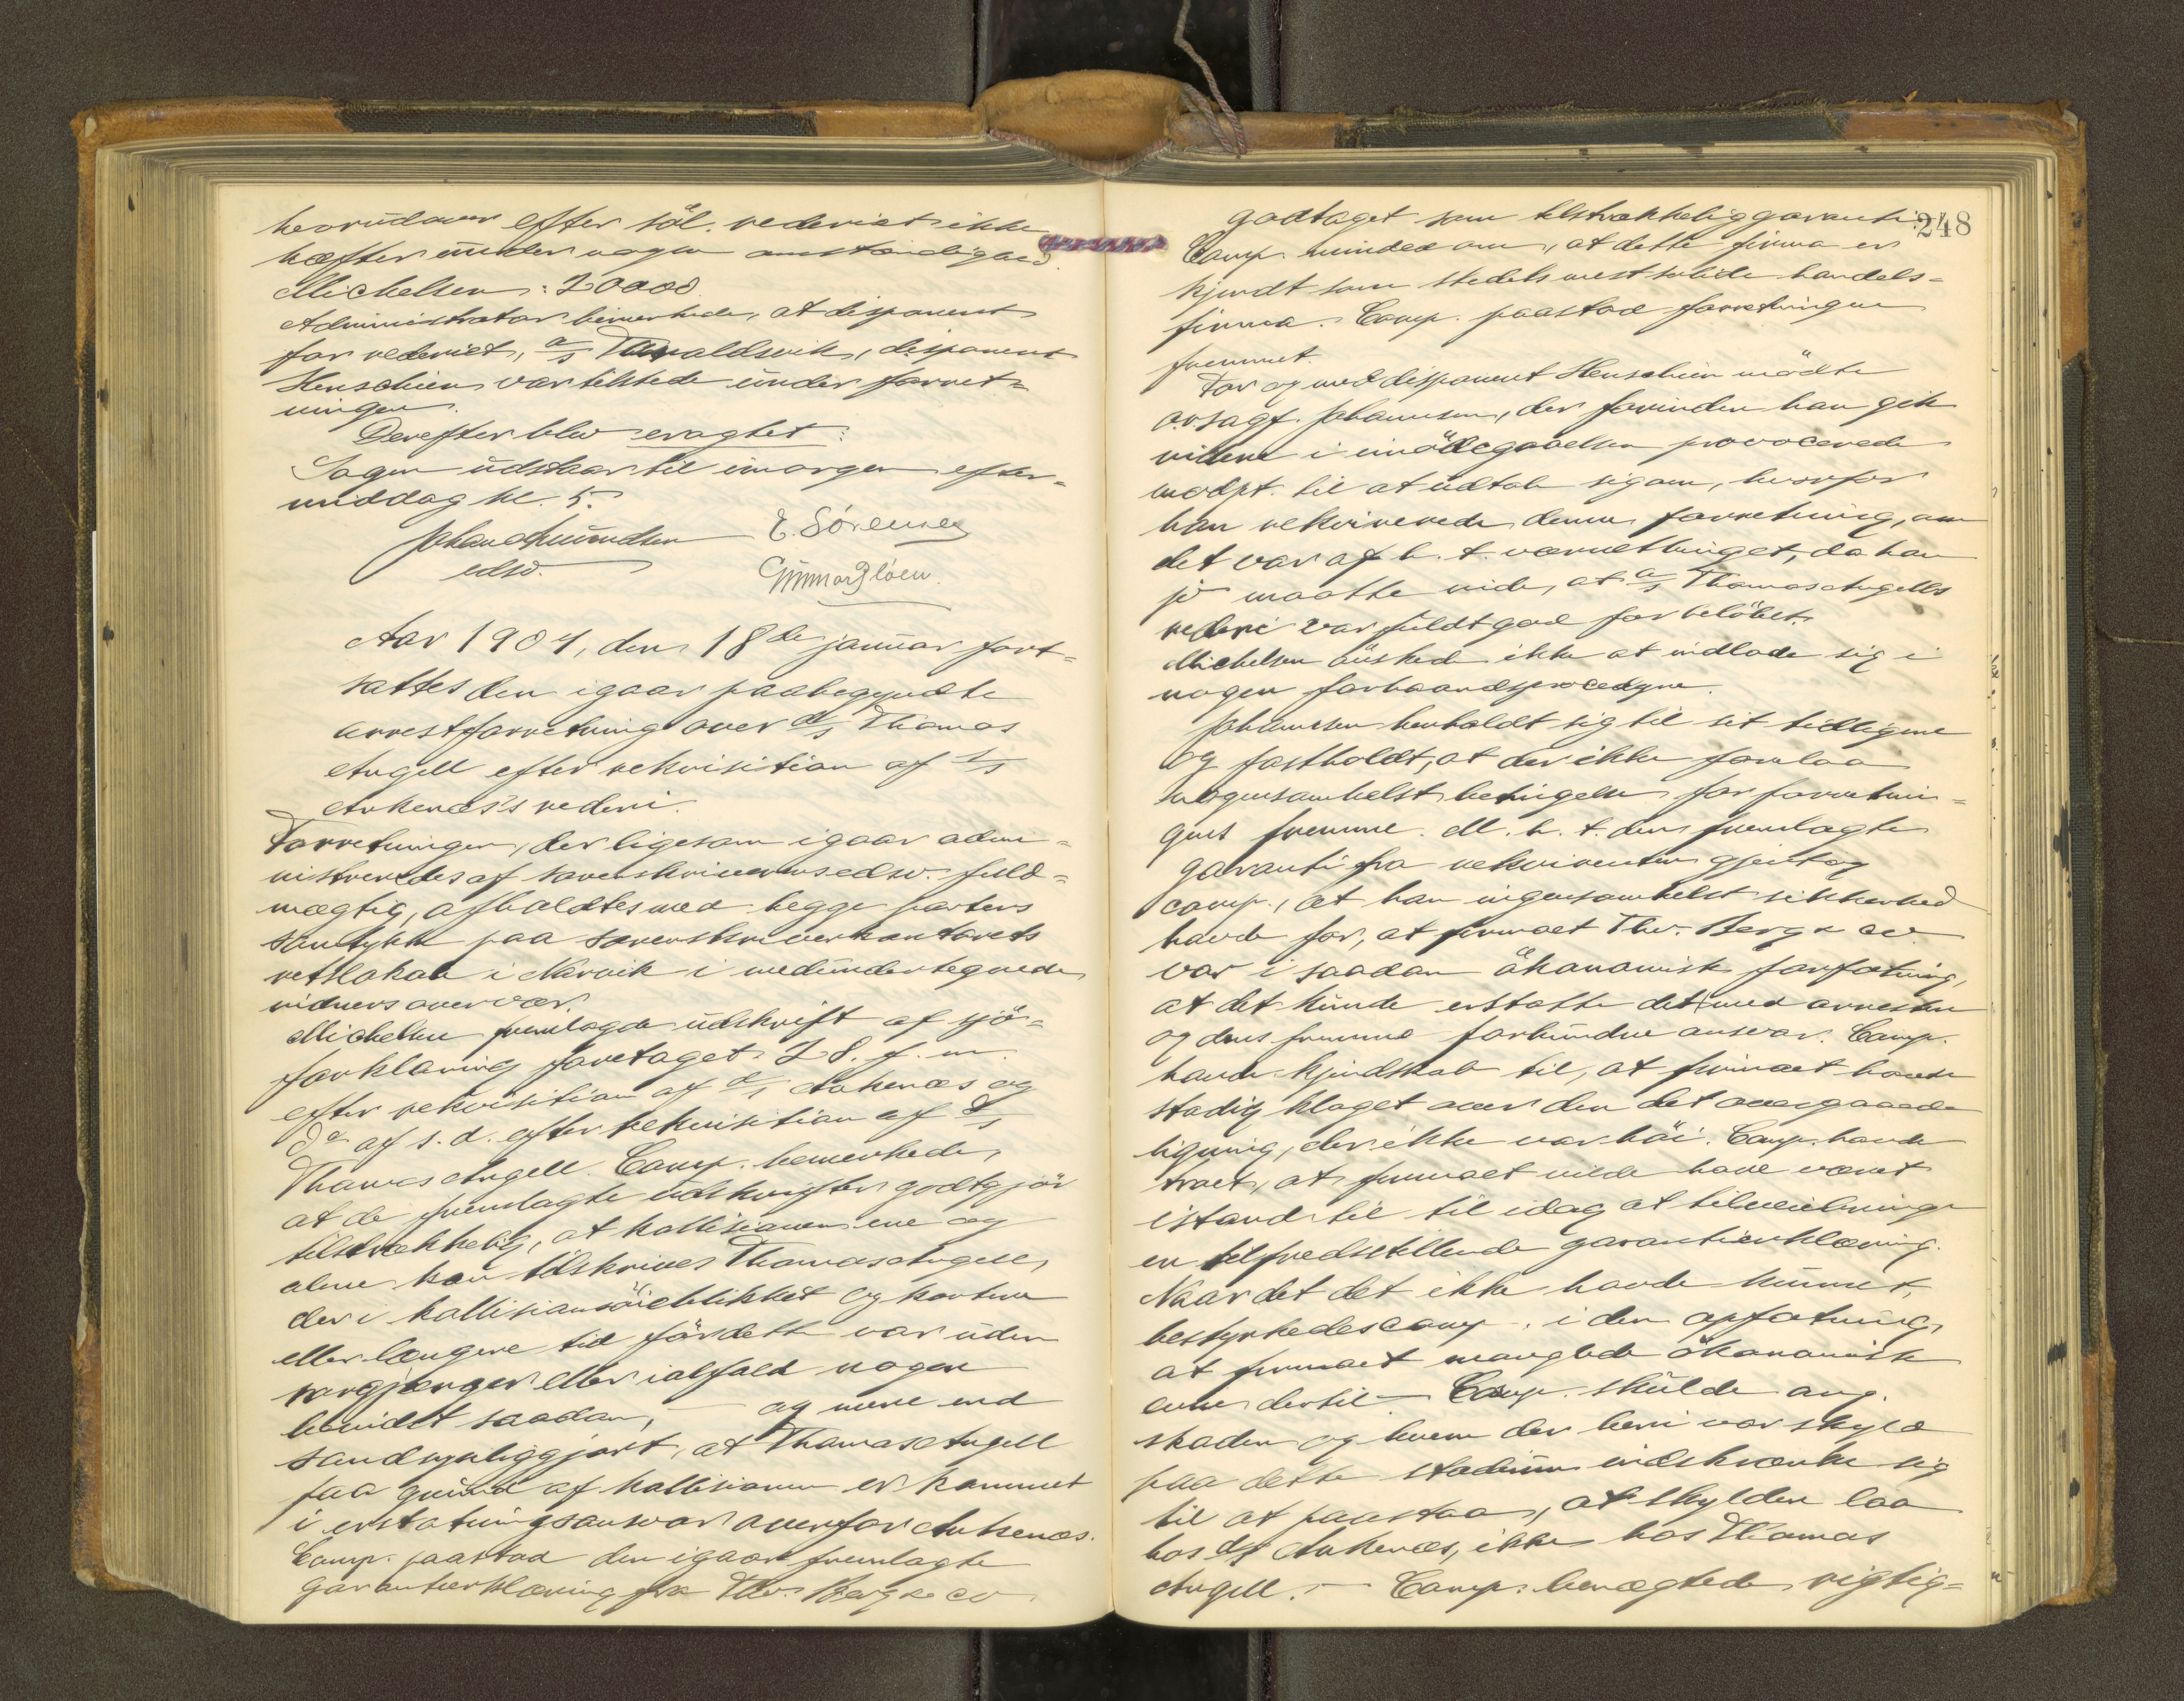 hvorudover efter söl. rederiet ikke
hæfter under nogen omstændighed
Michelsen: 20000
Administrator bemerkede, at disponent
for rederiet, a/s Haraldsvik, disponent
Henschien var tilstede under forret-
ningen.
Derefter blev eragtet:
Sagen udstaar til imorgen efter-
middag kl. 5.
Johan Amundsen E. Sörensen
edsv. Gunnar Floen.
Aar 1904, den 18de januar fort-
sattes den igaar paabegyndte
arrestforretning over d/s Thomas
Angell efter rekvisition af d/s
Ankenæs's rederi.
Forretningen, der ligesom igaar admi-
nistreredes af sorenskriverens edsv. fuld-
mægtig, afholdtes med begge parters
samtykke paa sorenskriverkontorets
retslokale i Narvik i medundertegnede
vidners overvær.
Michelsen fremlagde udskrift af sjö-
forklaring foretaget 28. f. m.
efter rekvisition af d/s Ankenæs og
do af s. d. efter rekvisition af d/s
Thomas Angell. Comp. bemerkede,
at de fremlagte udskrifter godtgjör
tilstrækkelig, at kollisionen ene og
alene kan tilskrives Thomas Angell,
der i kollisionsöieblikket og kortere
eller længere tid för dette var uden
vargjænger eller ialfald nogen
benidt saadan, og mere end
sandsynliggjort, at Thomas Angell
paa grund af kollisionen er kommet
i erstatningsansvar overfor Ankenæs.
Comp. paastod den igaar fremlagte
garantierklæring fra Thv. Berg & co
godtaget som tilstrækkelig garanti. 248
Comp. minded om, at dette firma er
kjendt som stedets mest solide handels-
firma. Comp. paastod forretningen
fremmet.
For og med disponent Henschien mödte
o.r.sagf. Johannesen, der forinden han gik
videre i imödegaaelsen provocerede
modpt. til at udtale sig om, hvorfor
han rekvirerede denne forretning, om
det var af h. t. værnethinget, da han
jo maatte vide, at a/s Thomas Angells
rederi var fuldt god for belöbet.
Michelsen önsked ikke at indlade sig i
nogen forhaandsprocedyre.
Johannesen henholdt sig til sit tidligere
og fastholdt, at der ikke forelaa
nogensomhelst betingelse for forretnin-
gens fremme. M. h. t. den fremlagte
garanti fra rekvirenten gjentog
comp., at han ingensomhelst sikkerhed
havde for, at firmaet Thv. Berg & co
var i saadan ökonomisk forfatning,
at det kunde erstatte det med arresten
og dens fremme forbundne ansvar. Comp.
havde kjendskab til, at firmaet havde
stadig klaget over den det overgaaede
ligning, der ikke var höi. Comp. havde
troet, at firmaet vilde have været
istand til til idag at tilveiebringe
en tilfredsstillende garantierklæring.
Naar det det ikke havde kunnet,
bestyrkedes comp. i den opfatning,
at firmaet manglede ökonomisk
evne dertil — Comp. skulde ang.
skaden og hvem der heri var skyld
paa dette stadium indskrænke sig
til at paastaa, at skylden laa
hos d/s Ankenæs, ikke hos Thomas
Angell. — Comp. benægtede rigtig-